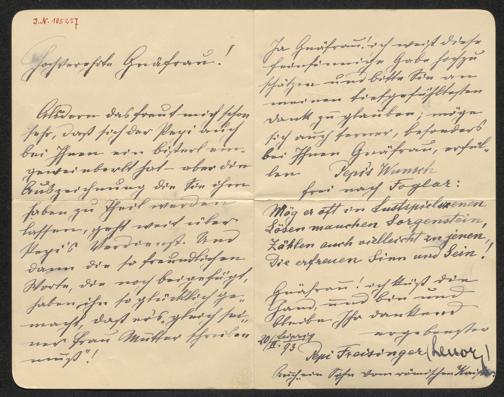 I.N. 185257
Hochverehrte Gnäfrau!
das freut mich schon
sehr, daß sich der Pepi auch
bei Ihnen ein bisserl ein-
hat – aber die
Auszeichnung die Sie ihm
haben zu Theil werden
lassen, geht weit über
Pepi's Verdienst. Und
dann die so freundlichen
Worte, die noch beigefügt,
haben ihn so glücklich ge-
macht, daß er's gleich sei-
ner Frau Mutter schreiben
muß"!
Ja Gnäfrau! ich weiß diese
feinsinnige Gabe hochzu
schätzen und bitte Sie an
meinen tiefgefühltesten
Dank zu glauben; möge
sich auch ferner, besonders
bei Ihnen Gnäfrau, erfül-
len Pepis Wunsch
frei nach Foglar:
Mög er oft in Lustspielscenen
Lösen manchen Sorgenstein,
Zählen auch vielleicht zu jenen,
Die erfreuen Sinn und Sein!
Gnäfrau! ich küß' die
Hand und bin und
bleibe Ihr dankend
ergebenster
93
Pepi Freisinger
Auch ein Sohn vom römischen Kaiser